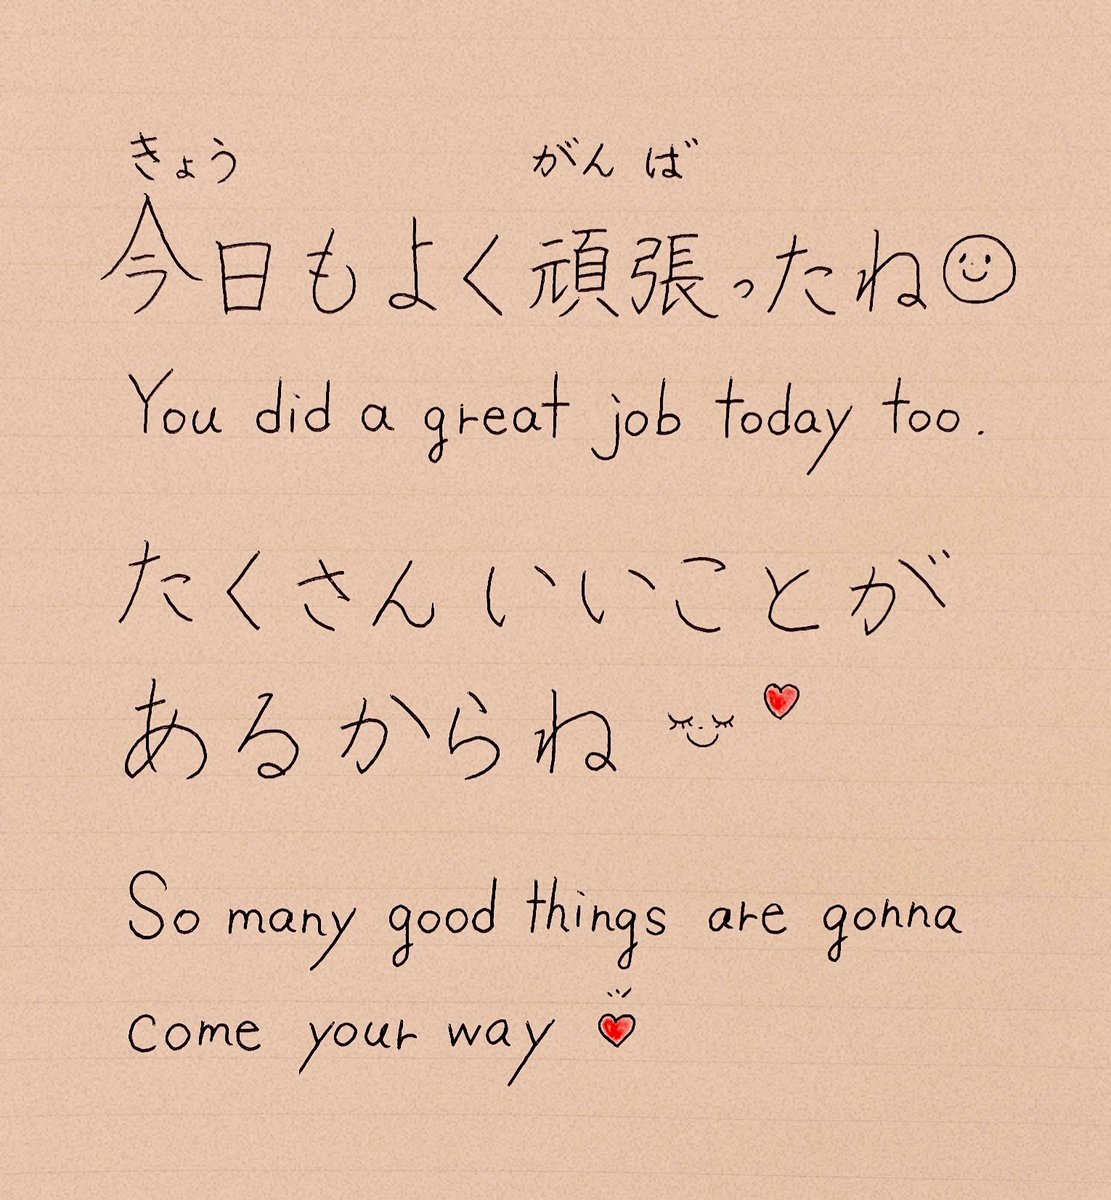 きょう がんば
今日もよく頑張ったね
You did a great job today too.
たくさんいいことが
あるからね
So many good things are gonna
come your way